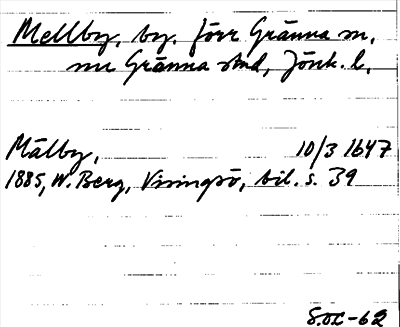 Mellby, by. förr Gränna sn,
nu Gränna stad, Jönk. l.
Mälby, 10/3 1647
1885, W. Berg, Visingsö, bil. s. 39
SOC-62